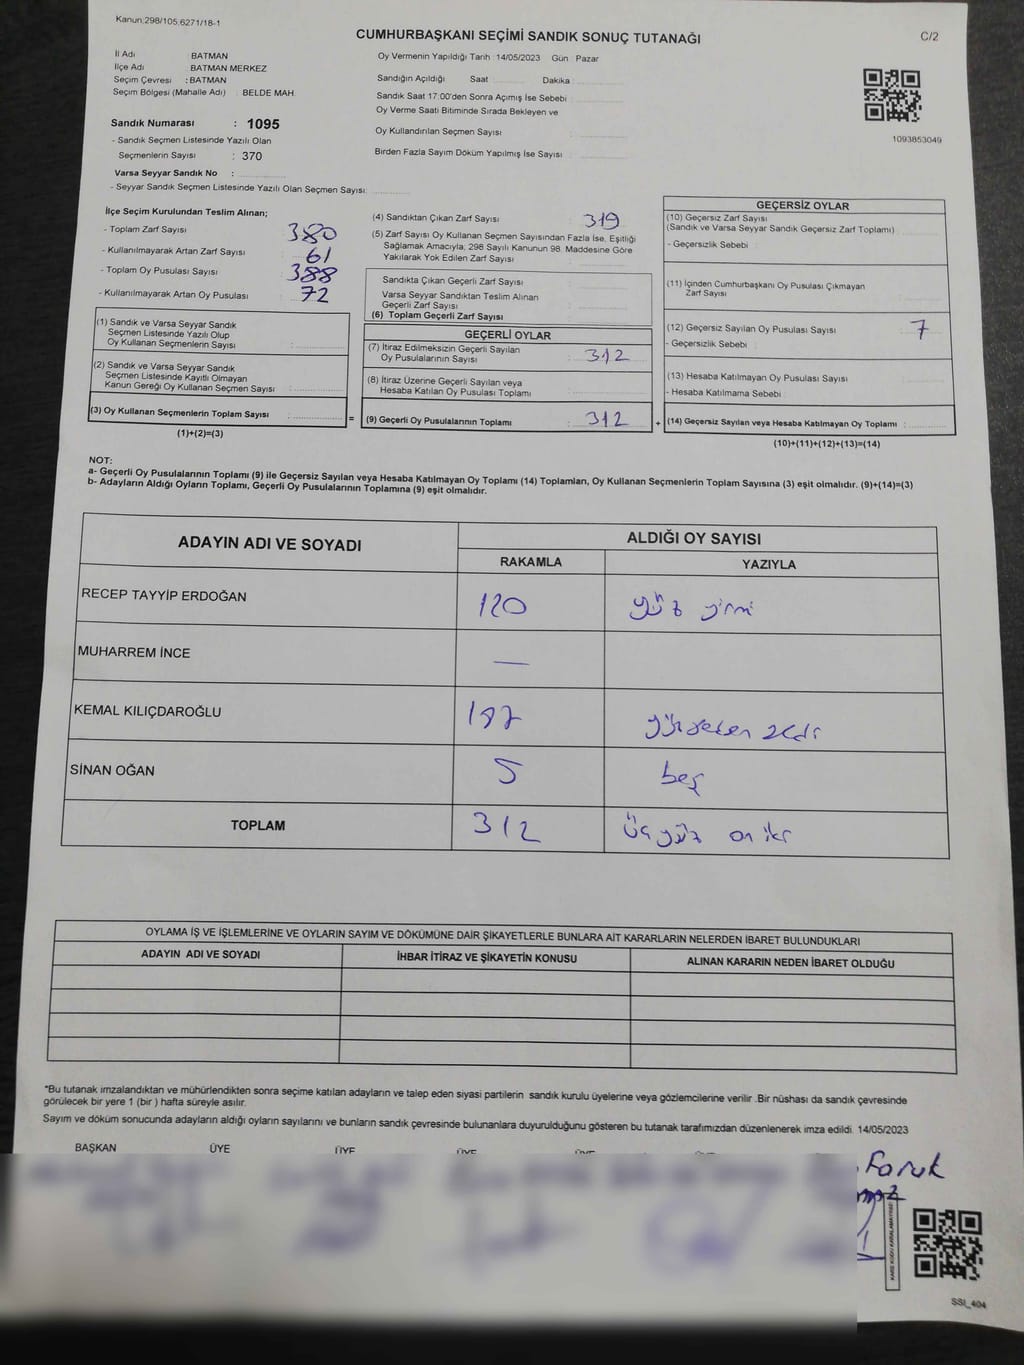 Kanun:298/105,6271/18-1
CUMHURBAŞKANI SEÇİMİ SANDIK SONUÇ TUTANAĞI
C/2
İl Adı : BATMAN
İlçe Adı : BATMAN MERKEZ
Seçim Çevresi : BATMAN
Seçim Bölgesi (Mahalle Adı) : BELDE MAH.
Sandık Numarası : 1095
- Sandık Seçmen Listesinde Yazılı Olan
Seçmenlerin Sayısı : 370
Varsa Seyyar Sandık No :
- Seyyar Sandık Seçmen Listesinde Yazılı Olan Seçmen Sayısı:
Oy Vermenin Yapıldığı Tarih : 14/05/2023 Gün Pazar
Sandığın Açıldığı Saat Dakika :
Sandık Saat 17:00'den Sonra Açımış İse Sebebi :
Oy Verme Saati Bitiminde Sırada Bekleyen ve
Oy Kullandırılan Seçmen Sayısı :
Birden Fazla Sayım Döküm Yapılmış İse Sayısı :
1093853049
İlçe Seçim Kurulundan Teslim Alınan;
- Toplam Zarf Sayısı : 380
- Kullanılmayarak Artan Zarf Sayısı : 61
- Toplam Oy Pusulası Sayısı : 388
- Kullanılmayarak Artan Oy Pusulası : 72
(1) Sandık ve Varsa Seyyar Sandık
Seçmen Listesinde Yazılı Olup
Oy Kullanan Seçmenlerin Sayısı :
(2) Sandık ve Varsa Seyyar Sandık
Seçmen Listesinde Kayıtlı Olmayan
Kanun Gereği Oy Kullanan Seçmen Sayısı :
(3) Oy Kullanan Seçmenlerin Toplam Sayısı : =
(1)+(2)=(3)
(4) Sandıktan Çıkan Zarf Sayısı : 319
(5) Zarf Sayısı Oy Kullanan Seçmen Sayısından Fazla İse, Eşitliği
Sağlamak Amacıyla; 298 Sayılı Kanunun 98. Maddesine Göre
Yakılarak Yok Edilen Zarf Sayısı :
Sandıkta Çıkan Geçerli Zarf Sayısı :
Varsa Seyyar Sandıktan Teslim Alınan
Geçerli Zarf Sayısı :
(6) Toplam Geçerli Zarf Sayısı :
GEÇERLİ OYLAR
(7) İtiraz Edilmeksizin Geçerli Sayılan
Oy Pusulalarının Sayısı : 312
(8) İtiraz Üzerine Geçerli Sayılan veya
Hesaba Katılan Oy Pusulası Toplamı :
(9) Geçerli Oy Pusulalarının Toplamı : 312 +
GEÇERSİZ OYLAR
(10) Geçersiz Zarf Sayısı
(Sandık ve Varsa Seyyar Sandık Geçersiz Zarf Toplamı) :
- Geçersizlik Sebebi :
(11) İçinden Cumhurbaşkanı Oy Pusulası Çıkmayan
Zarf Sayısı :
(12) Geçersiz Sayılan Oy Pusulası Sayısı : 7
- Geçersizlik Sebebi :
(13) Hesaba Katılmayan Oy Pusulası Sayısı :
- Hesaba Katılmama Sebebi :
(14) Geçersiz Sayılan veya Hesaba Katılmayan Oy Toplamı :
(10)+(11)+(12)+(13)=(14)
NOT:
a- Geçerli Oy Pusulalarının Toplamı (9) ile Geçersiz Sayılan veya Hesaba Katılmayan Oy Toplamı (14) Toplamları, Oy Kullanan Seçmenlerin Toplam Sayısına (3) eşit olmalıdır. (9)+(14)=(3)
b- Adayların Aldığı Oyların Toplamı, Geçerli Oy Pusulalarının Toplamına (9) eşit olmalıdır.
ADAYIN ADI VE SOYADI ALDIĞI OY SAYISI
RAKAMLA YAZIYLA
RECEP TAYYİP ERDOĞAN 120 yüz yirmi
MUHARREM İNCE —
KEMAL KILIÇDAROĞLU 187 yüzseksen yedi
SİNAN OĞAN 5 beş
TOPLAM 312 üçyüz on iki
OYLAMA İŞ VE İŞLEMLERİNE VE OYLARIN SAYIM VE DÖKÜMÜNE DAİR ŞİKAYETLERLE BUNLARA AİT KARARLARIN NELERDEN İBARET BULUNDUKLARI
ADAYIN ADI VE SOYADI İHBAR İTİRAZ VE ŞİKAYETİN KONUSU ALINAN KARARIN NEDEN İBARET OLDUĞU
*Bu tutanak imzalandıktan ve mühürlendikten sonra seçime katılan adayların ve talep eden siyasi partilerin sandık kurulu üyelerine veya gözlemcilerine verilir .Bir nüshası da sandık çevresinde
görülecek bir yere 1 (bir ) hafta süreyle asılır.
Sayım ve döküm sonucunda adayların aldığı oyların sayılarını ve bunların sandık çevresinde bulunanlara duyurulduğunu gösteren bu tutanak tarafımızdan düzenlenerek imza edildi. 14/05/2023
BAŞKAN ÜYE ÜYE ÜYE ÜYE
Faruk
KARE KODU KARALAMAYINIZ
SSI_404